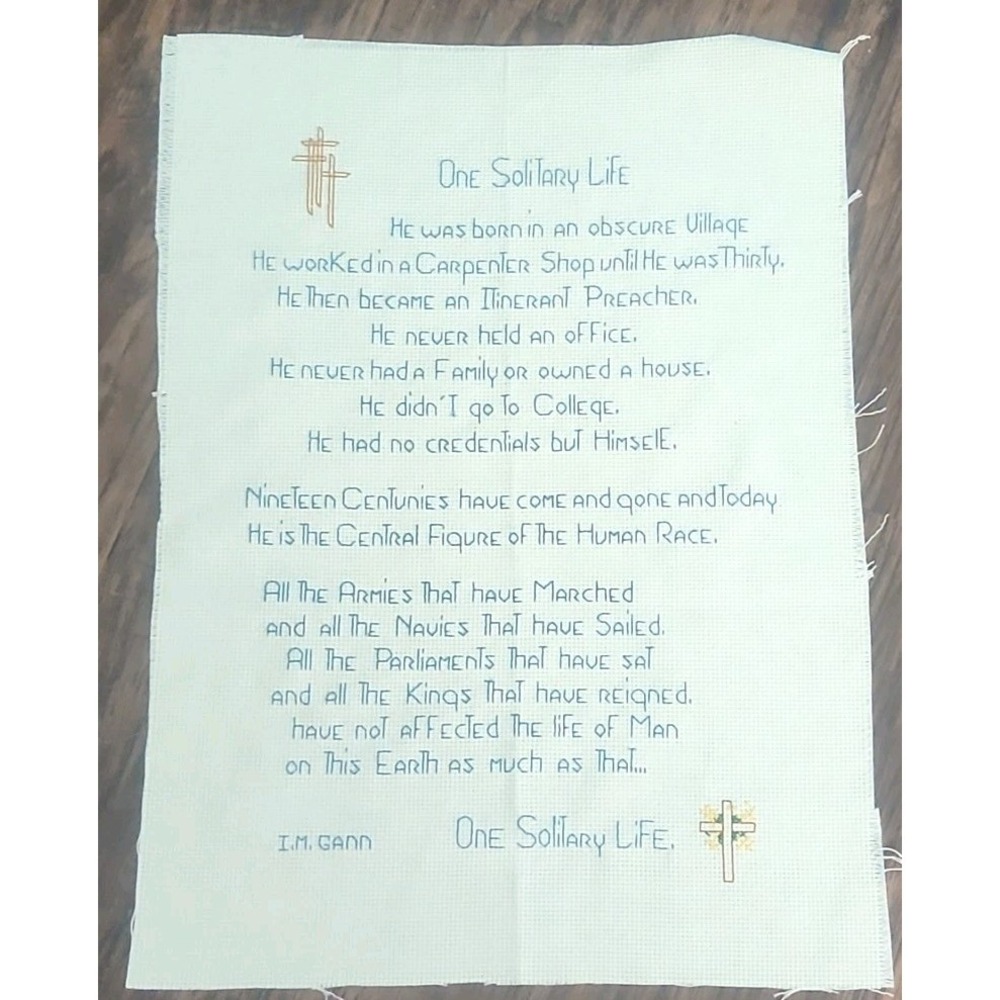 One Solitary Life
He was born in an obscure Village
He worked in a Carpenter Shop until He was Thirty.
He Then became an Itinerant Preacher.
He never held an office.
He never had a Family or owned a house.
He didn't go To College.
He had no credentials but Himself.
Nineteen Centunies have come and gone and Today
He is The Central Figure of The Human Race.
All The Armies That have Marched
and all The Navies That have Sailed.
All The Parliaments That have sat
and all The Kings That have reigned.
have not affected The life of Man
on This Earth as much as That...
I.M. GANN
One Solitary Life.